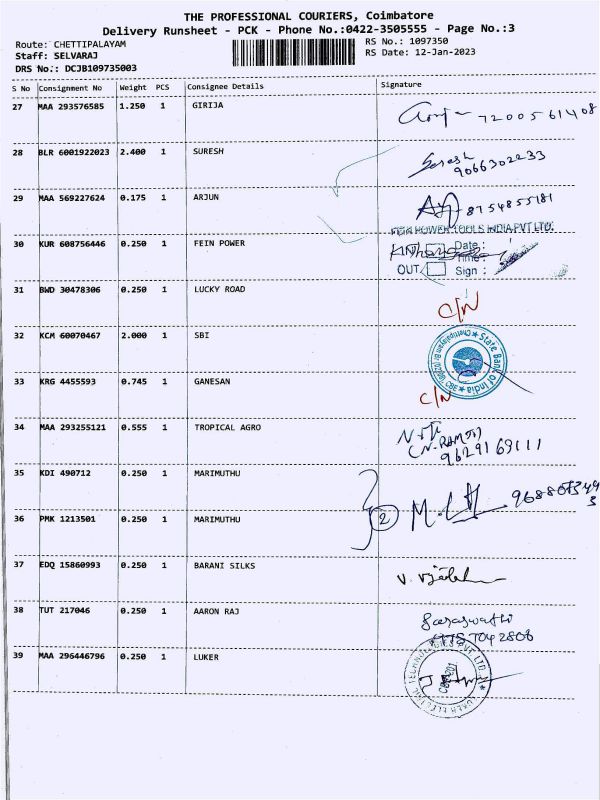 THE PROFESSIONAL COURIERS, Coimbatore
Delivery Runsheet - PCK - Phone No.:0422-3505555 - Page No.:3
Route: CHETTIPALAYAM
Staff: SELVARAJ
DRS No.: DCJB109735003
RS No.: 1097350
RS Date: 12-Jan-2023
S No Consignment No Weight PCS Consignee Details Signature
27 MAA 293576585 1.250 1 GIRIJA 7200561408
28 BLR 6001922023 2.400 1 SURESH Suresh
9066302233
29 MAA 569227624 0.175 1 ARJUN 8754855181
FEIN POWER TOOLS INDIA PVT LTD.
30 KUR 608756446 0.250 1 FEIN POWER IN Date :
Time
OUT Sign :
31 BWD 30478306 0.250 1 LUCKY ROAD
C/N
32 KCM 60070467 2.000 1 SBI State Bank of India
33 KRG 4455593 0.745 1 GANESAN
C/N
34 MAA 293255121 0.555 1 TROPICAL AGRO
9629169111
35 KDI 490712 0.250 1 MARIMUTHU
36 PMK 1213501 0.250 1 MARIMUTHU 2
37 EDQ 15860993 0.250 1 BARANI SILKS
38 TUT 217046 0.250 1 AARON RAJ Saraswathi
39 MAA 296446796 0.250 1 LUKER